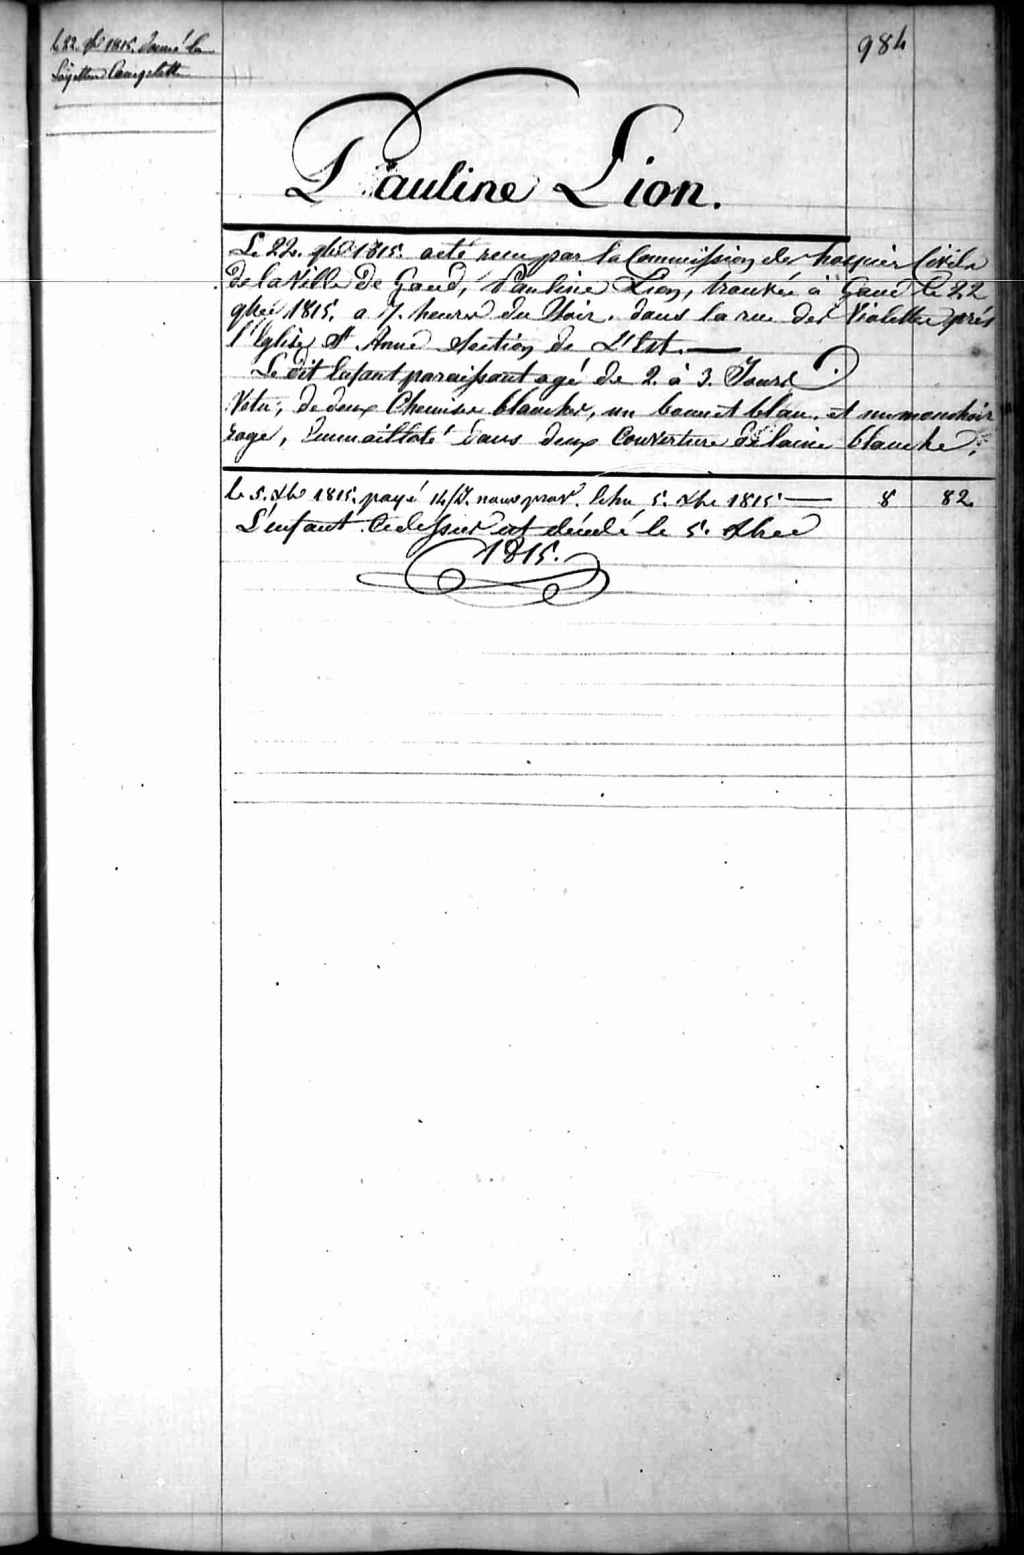 le 22. 9bre 1815. donné la
Layettes Complette
984
Pauline Lion.
Le 22. 9bre 1815. a été recu par la Commission des hospices Civils
de la Ville de Gand, Pauline Lion, trouvée à Gand le 22
9bre 1815. a 7. heures du Soir. dans la rue des Violettes près
l'Eglise St Anne Section de L'Est.
Le dit Enfant paraissant agé de 2. à 3. Jours
Vetu, de deux Chemises blanches, un bonnet blan. et un mouchoir
roge, Emmailloté dans deux Couverture de laine blanche.
le 5. Xbre 1815. payé nour 5. Xbre 1815 — 8 82
L'enfant Cidessus est décédé le 5. Xbre
1815.